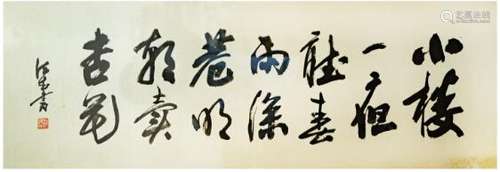 小楼
一夜
聽春
雨深
巷明
朝賣
杏花